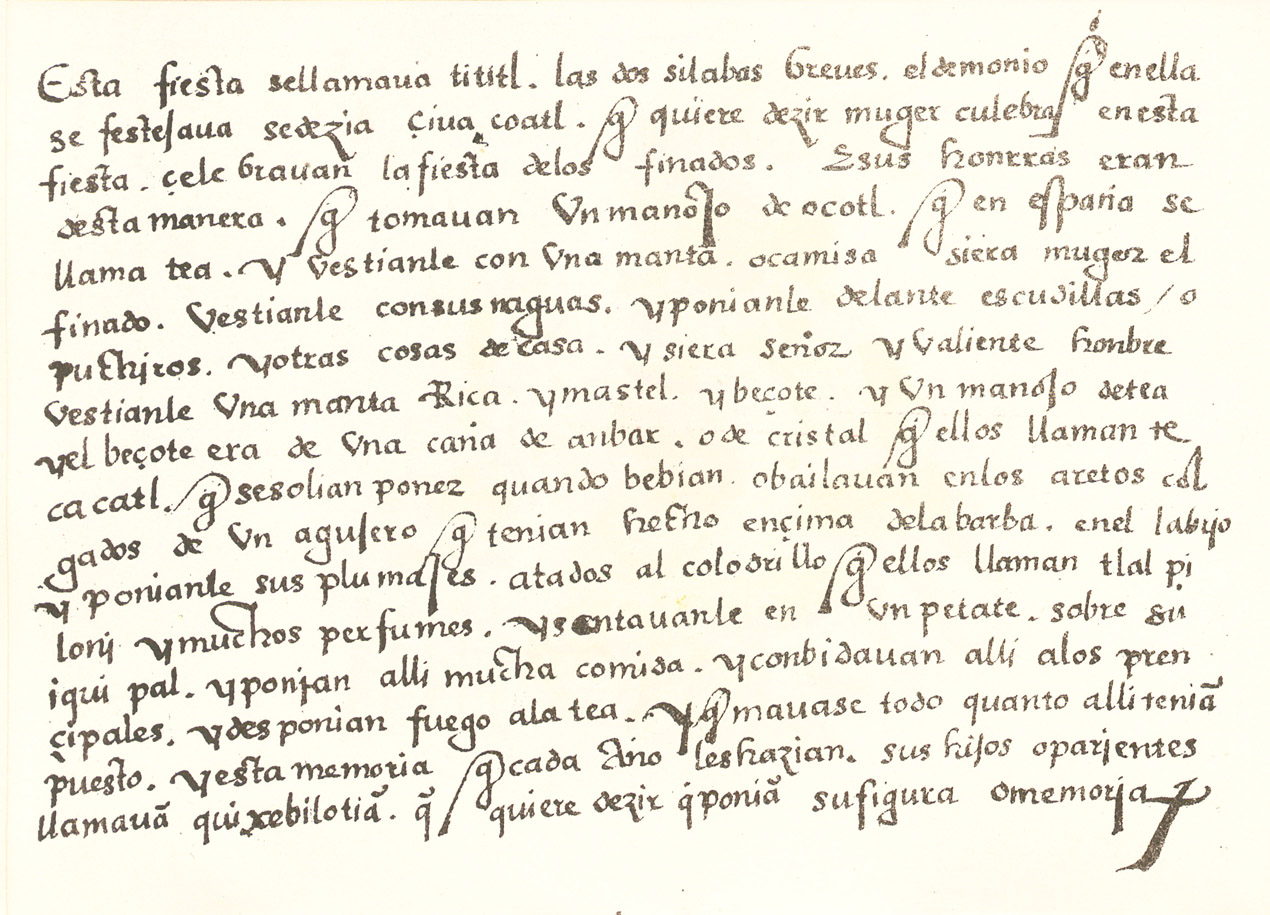 Esta fiesta sellamaua tititl. las dos silabas breues. el demonio q̃ en ella
se festejaua sedezia çiua coatl. q̃ quiere dezir muger culebra, en esta
fiesta. çele brauan la fiesta delos finados. Esus honrras eran
desta manera. q̃ tomauan Vn manojo de ocotl. q̃ en españa se
llama tea. y Vestianle con Vna manta. ocamisa siera muger el
finado. Vestianle consus naguas. y ponianle delante escudillas / o
puchjros. yotras cosas de casa. y siera señor y Valiente honbre
Vestianle Vna manta Rica. y mastel. y beçote. y Vn manojo de tea
yel beçote era de Vna caña de anbar. o de cristal q̃ ellos llaman te
cacatl. q̃ sesolian poner quando bebian. obailauan enlos aretos col
gados de Vn agujero q̃ tenian hecho ençima dela barba. enel labijo
y ponianle sus plumajes. atados al colodrillo q̃ ellos llaman tlal pi
lonj y muchos perfumes. y sentauanle en Vn petate. sobre su
iqui pal. y ponjan alli mucha comida. y conbidauan alli alos pren
çipales. y des ponian fuego ala tea. y q̃mauase todo quanto alli teniã
puesto. y esta memoria q̃ cada Año leshazian. sus hijos oparjentes
llamauã quixebilotiã. q̃ quiere dezir q̃ poniã su figura o memorja